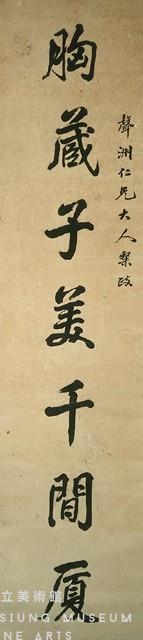 聲洲仁兄大人棨政
胸藏子美千間厦
立美術館
SIUNG MUSEUM
NE ARTS